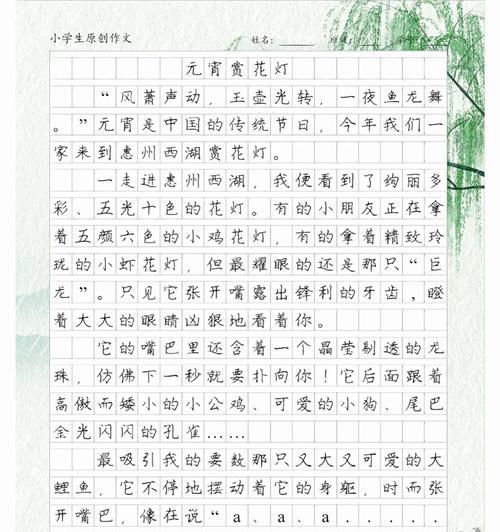 小学生原创作文 姓名: 班级:
元宵赏花灯
“风萧声动，玉壶光转，一夜鱼龙舞
。”元宵是中国的传统节日，今年我们一
家来到惠州西湖赏花灯。
一走进惠州西湖，我便看到了绚丽多
彩、五光十色的花灯。有的小朋友正在拿
着五颜六色的小鸡花灯，有的拿着精致玲
珑的小虾花灯，但最耀眼的还是那只“巨
龙”。只见它张开嘴露出锋利的牙齿，瞪
着大大的眼睛凶狠地看着你。
它的嘴巴里还含着一个晶莹剔透的龙
珠，仿佛下一秒就要扑向你！它后面跟着
高傲而矮小的小公鸡、可爱的小狗、尾巴
金光闪闪的孔雀……
最吸引我的要数那只又大又可爱的大
鲤鱼，它不停地摆动着它的身躯，时而张
开嘴巴，像在说“a、a、a....